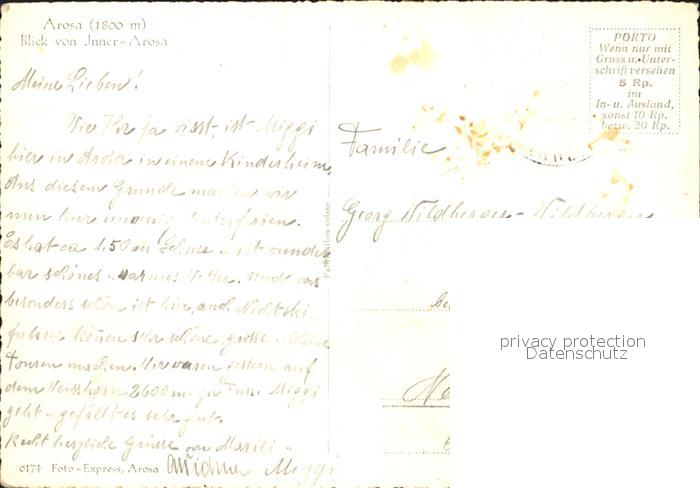 Arosa (1800 m)
Blick von Jnner-Arosa
Meine Lieben!
Wie Ihr ja wisst, ist Miggi
hier in Arosa in einem Kinderheim.
Aus diesem Grunde machen wir
nun hier Winterferien.
Es hat ca 1.50 m Schnee u. ist wunder-
bar schönes u. warmes Wetter. Und was
besonders schön ist hier, auch Nichtski-
fahrer können sehr schöne grosse u. kleine
Touren machen. Wir waren gestern auf
dem Weisshorn 2600 m. zu Fuss. Miggi
geht u. gefällt es sehr gut.
Recht herzliche Grüsse von Marili u.
Miggi
6174 Foto-Express, Arosa
Fabrication suisse
PORTO
Wenn nur mit
Gruss u. Unter-
schrift versehen
5 Rp.
im
In- u. Ausland,
sonst 10 Rp.
bezw. 20 Rp.
Familie
Georg Wildberger-Wildberger
privacy protection
Datenschutz